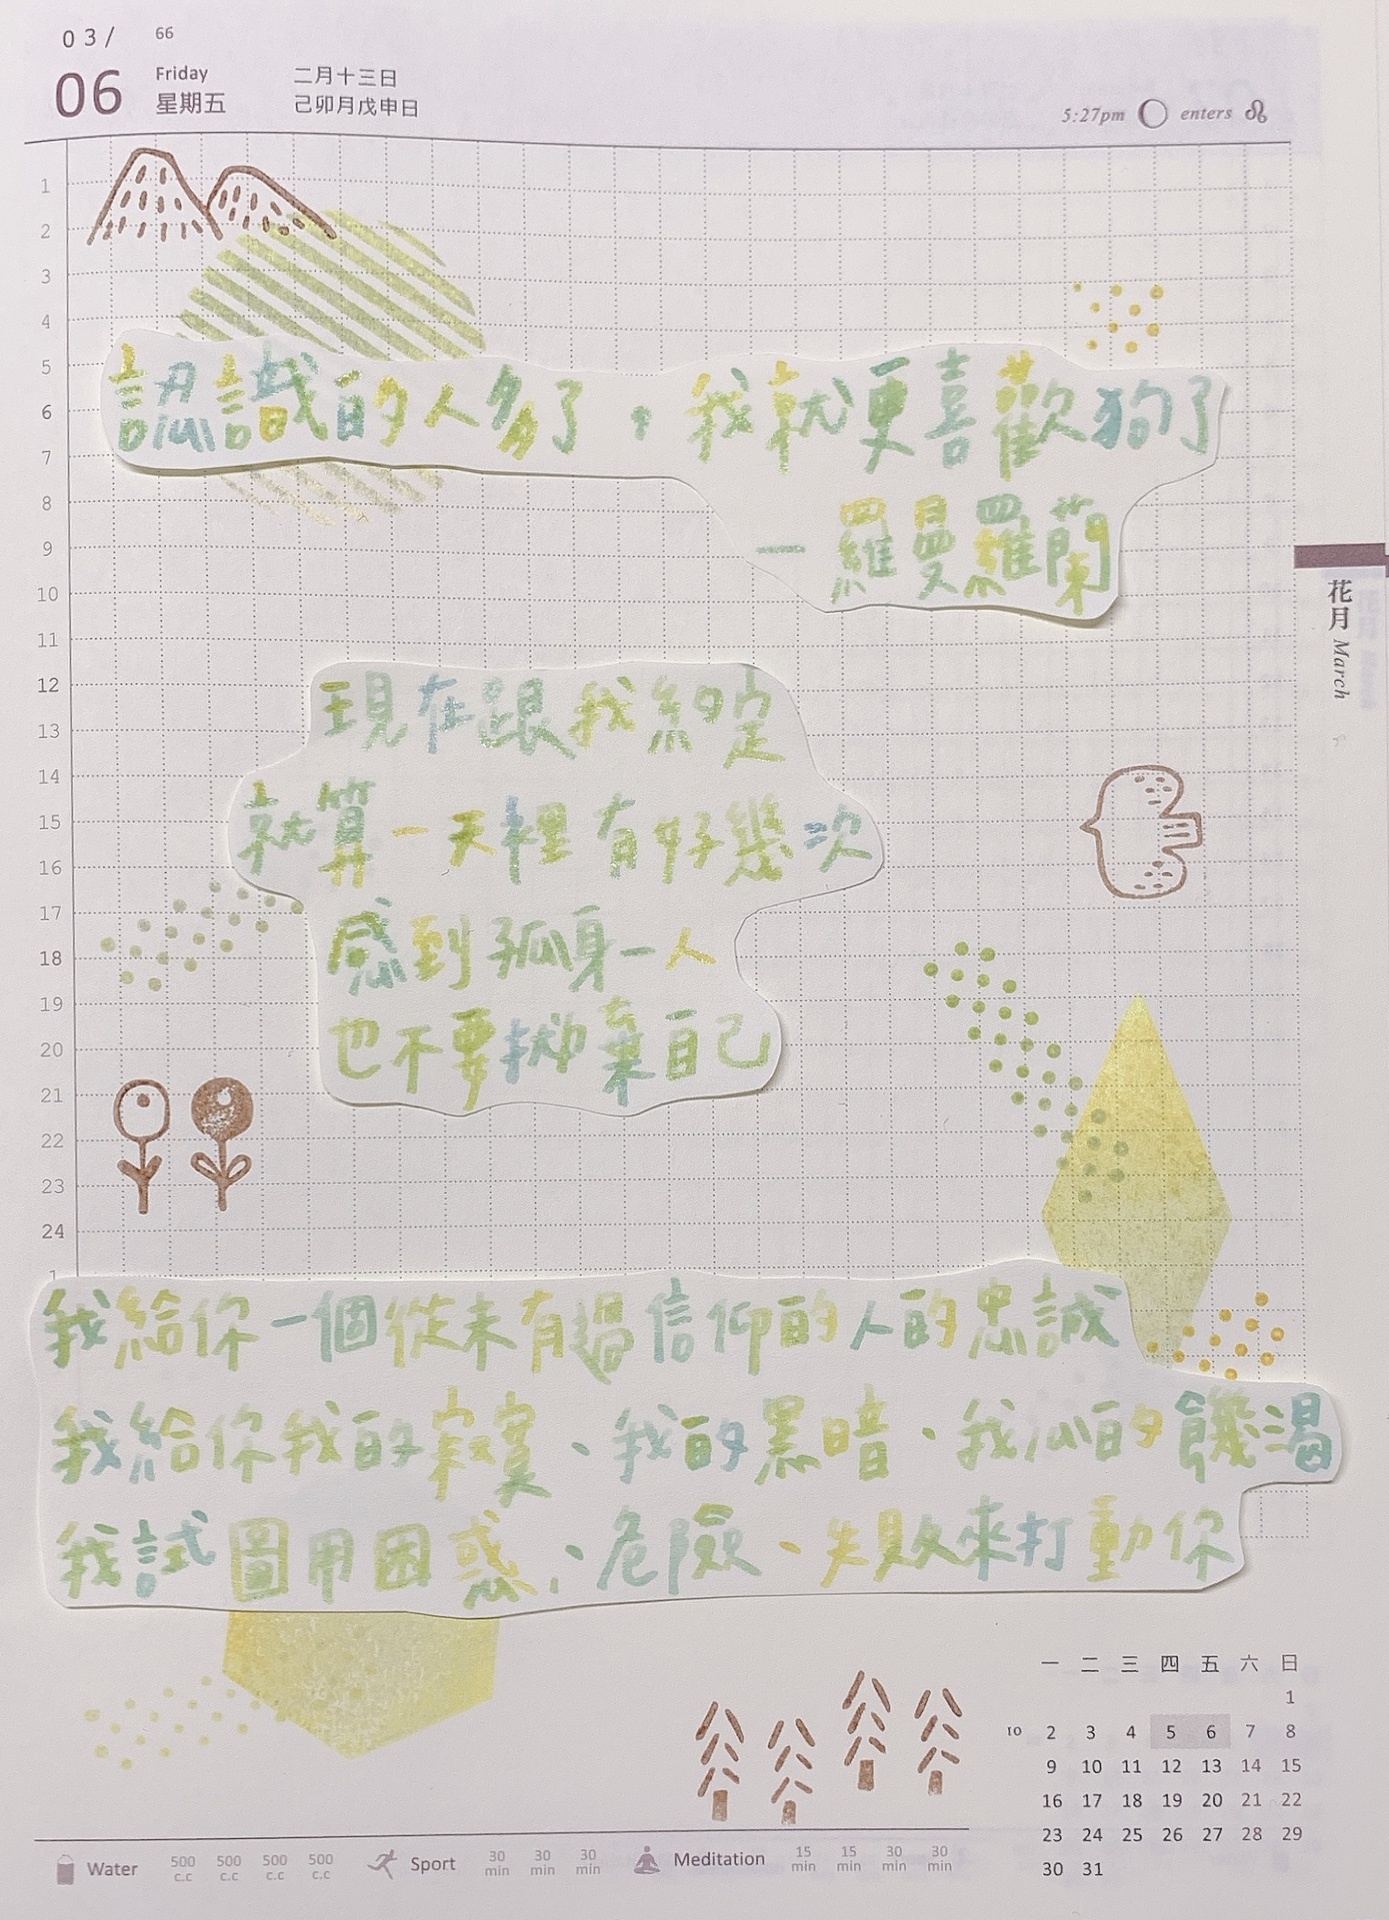 03/ 66
06 Friday 二月十三日
星期五 己卯月戊申日
5:27pm enters ♌
1
2
3
4
5
6
7
8
9
10
11
12
13
14
15
16
17
18
19
20
21
22
23
24
1
認識的人多了，我就更喜歡狗了
— 羅曼羅蘭
花月 March
現在跟我約定
就算一天裡有好幾次
感到孤身一人
也不要拋棄自己
我給你一個從未有過信仰的人的忠誠
我給你我的寂寞、我的黑暗、我心的饑渴
我試圖用困惑、危險、失敗來打動你
一 二 三 四 五 六 日
1
10 2 3 4 5 6 7 8
9 10 11 12 13 14 15
16 17 18 19 20 21 22
23 24 25 26 27 28 29
30 31
Water 500 c.c 500 c.c 500 c.c 500 c.c Sport 30 min 30 min 30 min Meditation 15 min 15 min 30 min 30 min